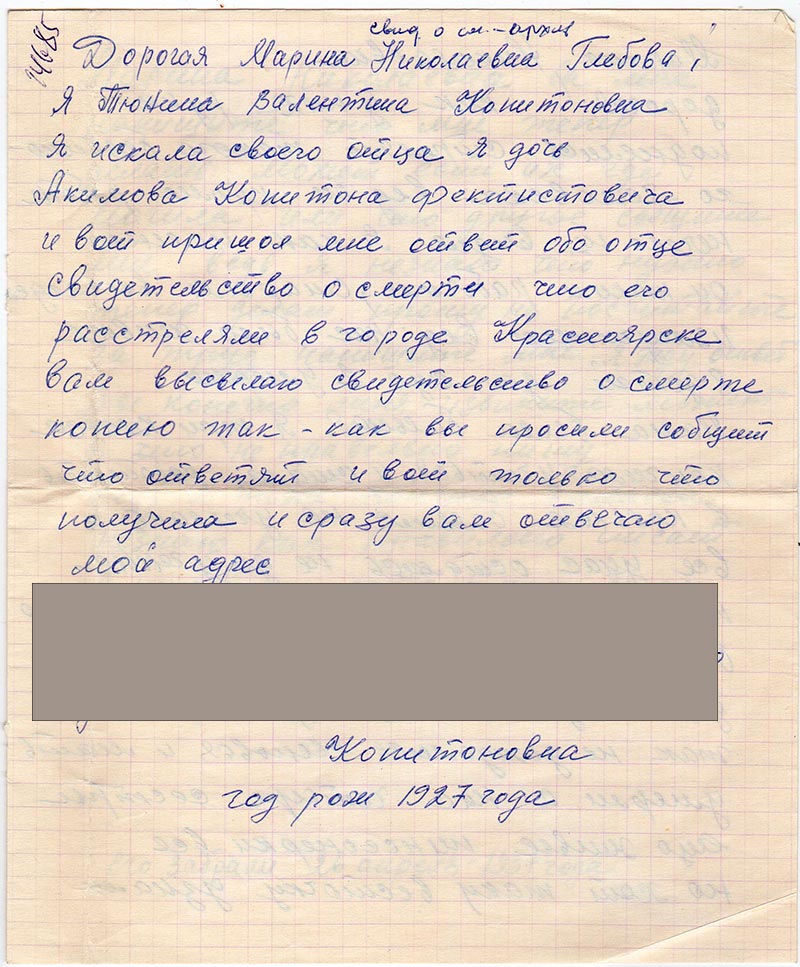 14685
свид о см. - архив
Дорогая Марина Николаевна Глебова!
Я Тюнина Валентина Копитоновна
Я искала своего отца Я дочь
Акимова Копитона Фектистовича
и вот пришол мне ответ обо отце
Свидетельство о смерти что его
расстреляли в городе Красноярске
вам высылаю свидетельство о смерте
копию так - как вы просили собщит
что ответят и вот только что
получила и сразу вам отвечаю
мой адрес
Копитоновна
год рож 1927 года